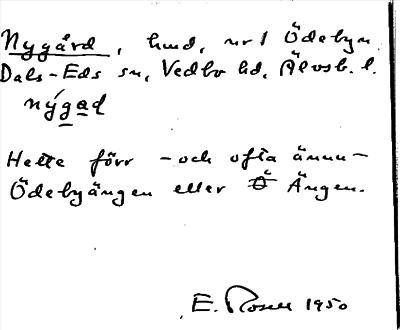 Nygård, hmd, nr 1 Ödebyn
Dals-Eds sn, Vedbo hd, Älvsb. l.
nýgad
Hette förr - och ofta ännu -
Ödebyängen eller Ängen.
E. Rosell 1950